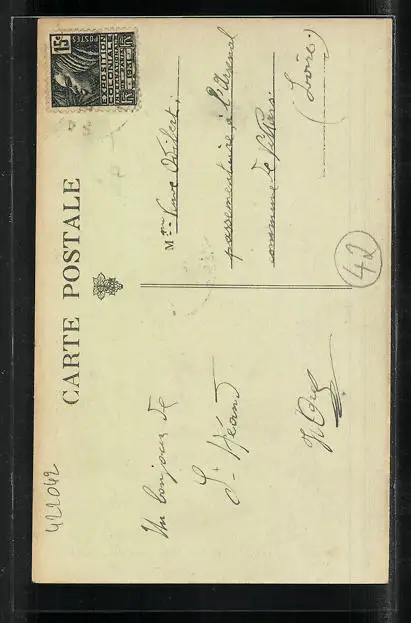 CARTE POSTALE
15c
POSTES
EXPOSITION
COLONIALE
INTERNATIONALE
PARIS 1931
Un bonjour de
St-Héand
Mme Vve
passementière, à l'Arsenal
commune de Villars
(Loire.)
42
422042